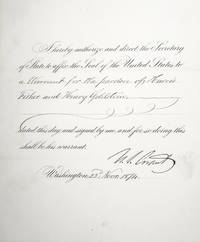 I hereby authorize and direct the Secretary
of State to affix the Seal of the United States to
a Warrant for the pardon of Aaron
Fisher and Henry Goldstein
dated this day and signed by me, and for so doing this
shall be his warrant.
U.S. Grant
Washington, 23 Novr. 1874.